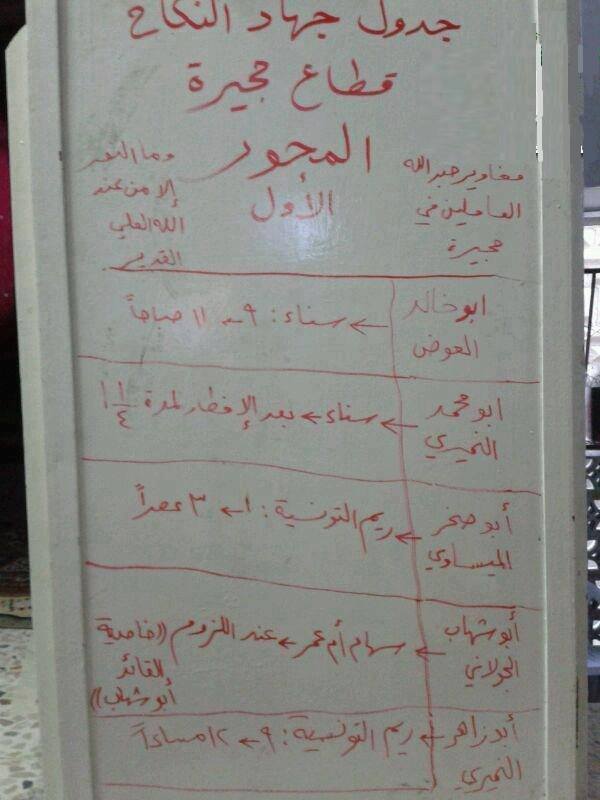 جدول جهاد النكاح
قطاع حجيرة
المحور
الأول
مغاوير جبر الله
العاملين في
حجيرة
وما النصر
إلا من عند
الله العلي
القدير
ابو خالد
العوض
← سناء: ٩ ← ١١ صباحاً
ابو محمد
النميري
← سناء ← بعد الإفطار لمدة ١ ١/٤
أبو صخر
الميساوي
← ريم التونسية: ١ ← ٣ عصراً
أبو شهاب
الجولاني
← سهام أم عمر ← عند اللزوم ((خاصية
القائد
أبو شهاب))
أبو زاهر
النميري
← ريم التونسية: ٩ ← ١٢ مساءاً